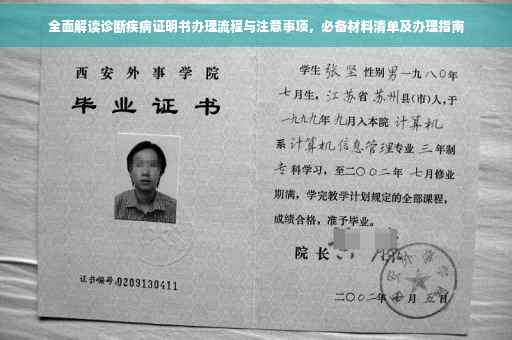 全面解读诊断疾病证明书办理流程与注意事项，必备材料清单及办理指南
西安外事学院
毕业证书
证书编号:0209130411
学生 张坚 性别 男 一九八〇年
七月生，江苏省 苏州 县(市)人，于
一九九九年 九月入本院 计算机
系 计算机信息管理 专业 三 年制
专 科学习，至二〇〇二年 七月修业
期满，学完教学计划规定的全部课程，
成绩合格，准予毕业。
院长
二〇〇二年 月 五日